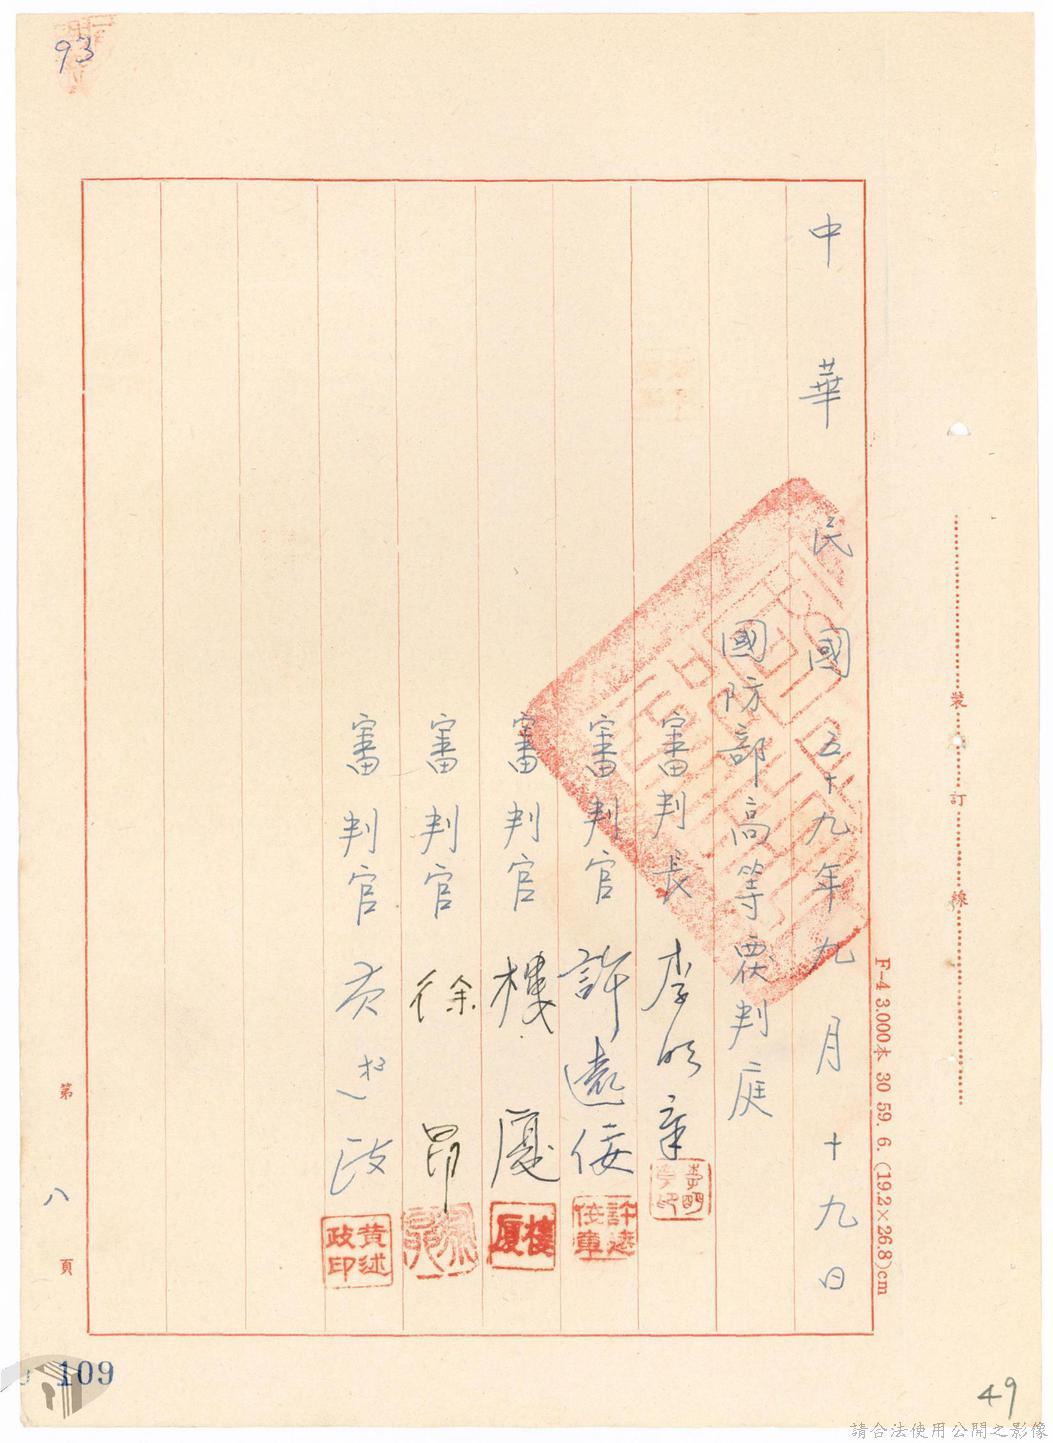 93
中華民國五十九年九月十九日
國防部高等覆判庭
審判長 李明章
審判官 許遠俊
審判官 樓廈
審判官 徐昂
審判官 黃述政
樓廈
黃述政印
裝 訂 線
F-4 3.000本 30 59. 6. (19.2×26.8)cm
第 八 頁
109
49
請合法使用公開之影像